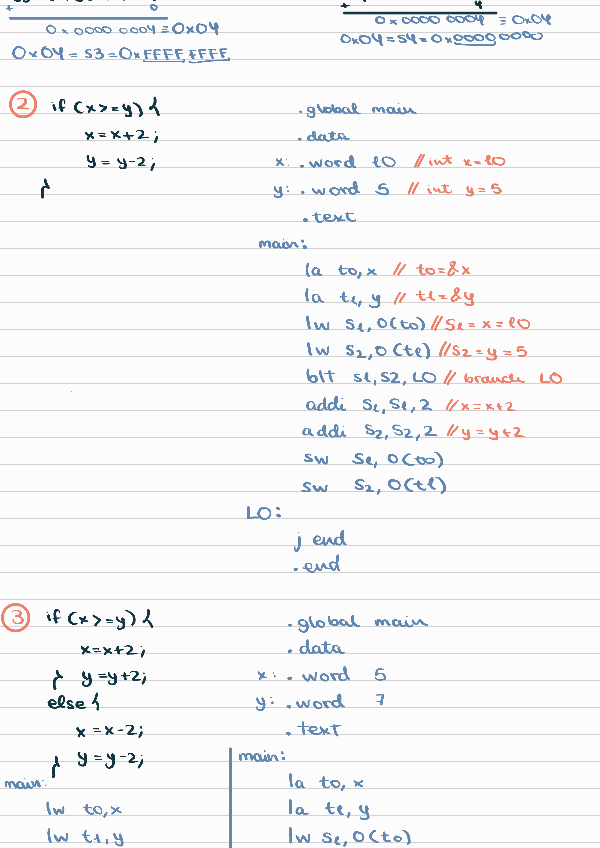 + 0
0x0000 0004 ≡ 0x04
0x04 = S3 = 0xFFFF FFFF
+ 4
0x0000 0004 ≡ 0x04
0x04 = S4 = 0x0000 0000
2 if (x>=y) {
x=x+2;
y=y-2;
}
.global main
.data
x: .word 10 // int x=10
y: .word 5 // int y=5
.text
main:
la t0, x // t0=&x
la t1, y // t1=&y
lw S1, 0(t0) // S1=x=10
lw S2, 0(t1) // S2=y=5
blt S1, S2, L0 // branch L0
addi S1, S1, 2 // x=x+2
addi S2, S2, 2 // y=y+2
sw S1, 0(t0)
sw S2, 0(t1)
L0:
j end
.end
3 if (x>=y) {
x=x+2;
} y=y+2;
else {
x=x-2;
} y=y-2;
.global main
.data
x: .word 5
y: .word 7
.text
main:
lw t0, x
lw t1, y
main:
la t0, x
la t1, y
lw S1, 0(t0)